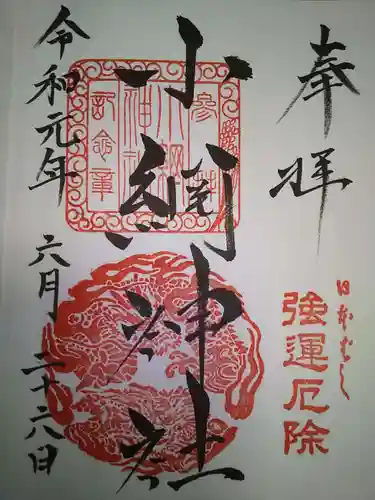 奉拝
日本ばし
強運厄除
小網神社
参拝
小網
神社
記念章
令和元年 六月 二十六日